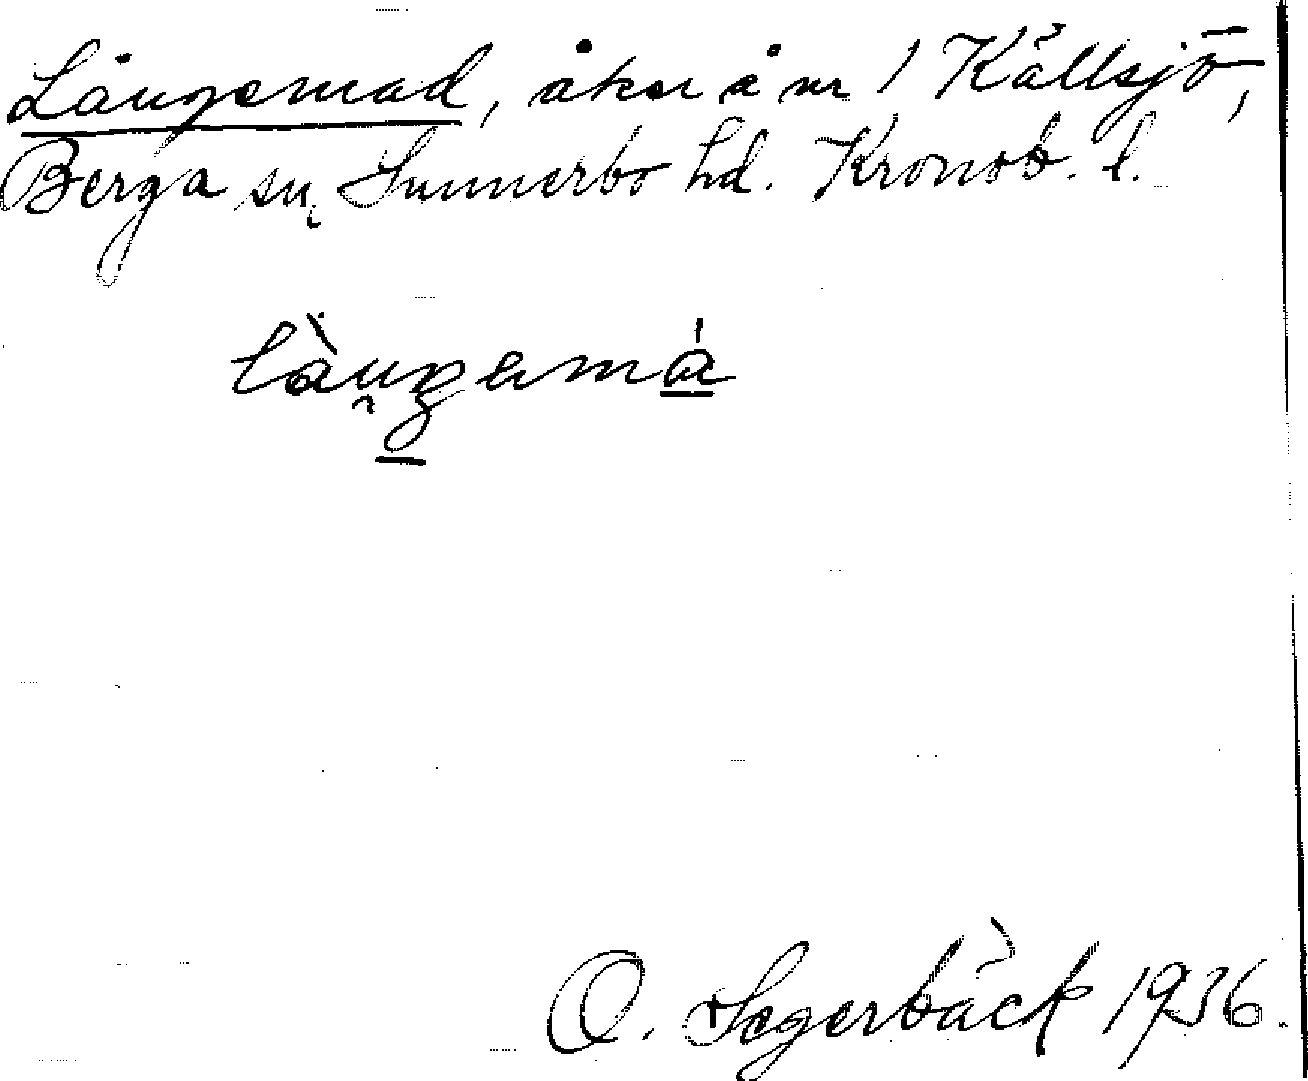 Långemad, åker å nr 1 Källsjö,
Berga sn, Sunnerbo hd. Kronob. l.
O. Segerbäck 1936.